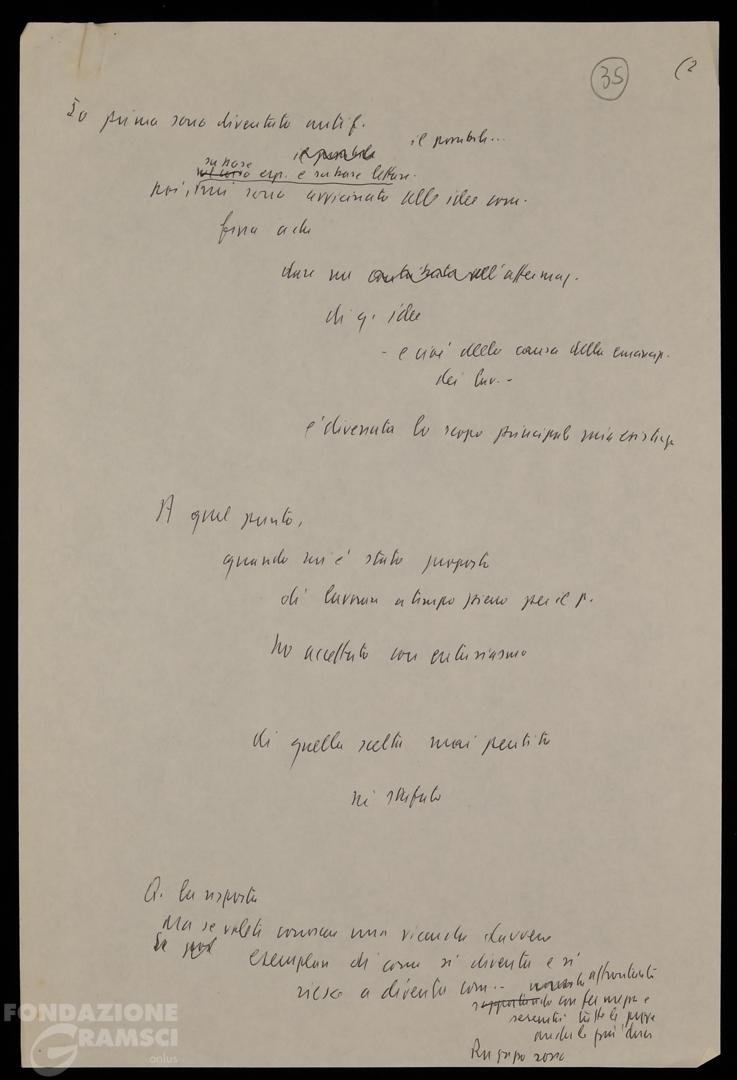 35
(2
Io prima sono diventato antif.
il possibile...
il possibile
su base
nel corso esp. e su base letture.
poi, mi sono avvicinato alle idee com.
fino a che
dare un contributo all'affermaz.
di q. idee
- e cioè della causa della emancip.
dei lav. -
è divenuto lo scopo principale mia esistenza
A quel punto,
quando mi è stato proposto
di lavorare a tempo pieno per il p.
ho accettato con entusiasmo
di quella scelta mai pentito
né stufato
Q. la risposta
Ma se volete conoscere una vicenda davvero
esemplare di come si diventa e si
riesce a diventare com... affrontando
sopportando con fermezza e
serenità tutte le prove
anche le più dure
FONDAZIONE
GRAMSCI
onlus